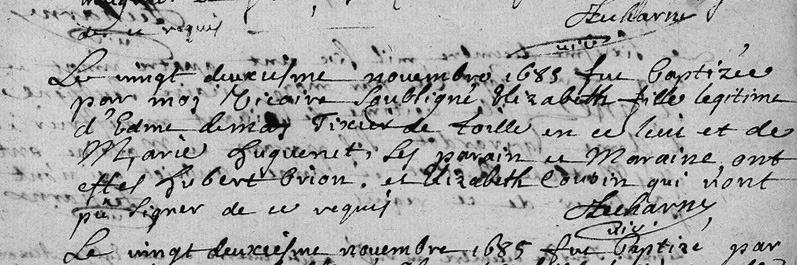 de ce requis Lucharne
vic
Le vingt deuxiesme novembre 1685 fut baptizée
par moy Vicaire soubsigné Elizabeth fille legitime
d'Edme Tixier de toille en ce lieu et de
Marie huguenet, les parain et Maraine ont
estes hubert brion, et Elizabeth Cousin qui n'ont
pu signer de ce requis
vic
Le vingt deuxiesme novembre 1685 fut baptizé par